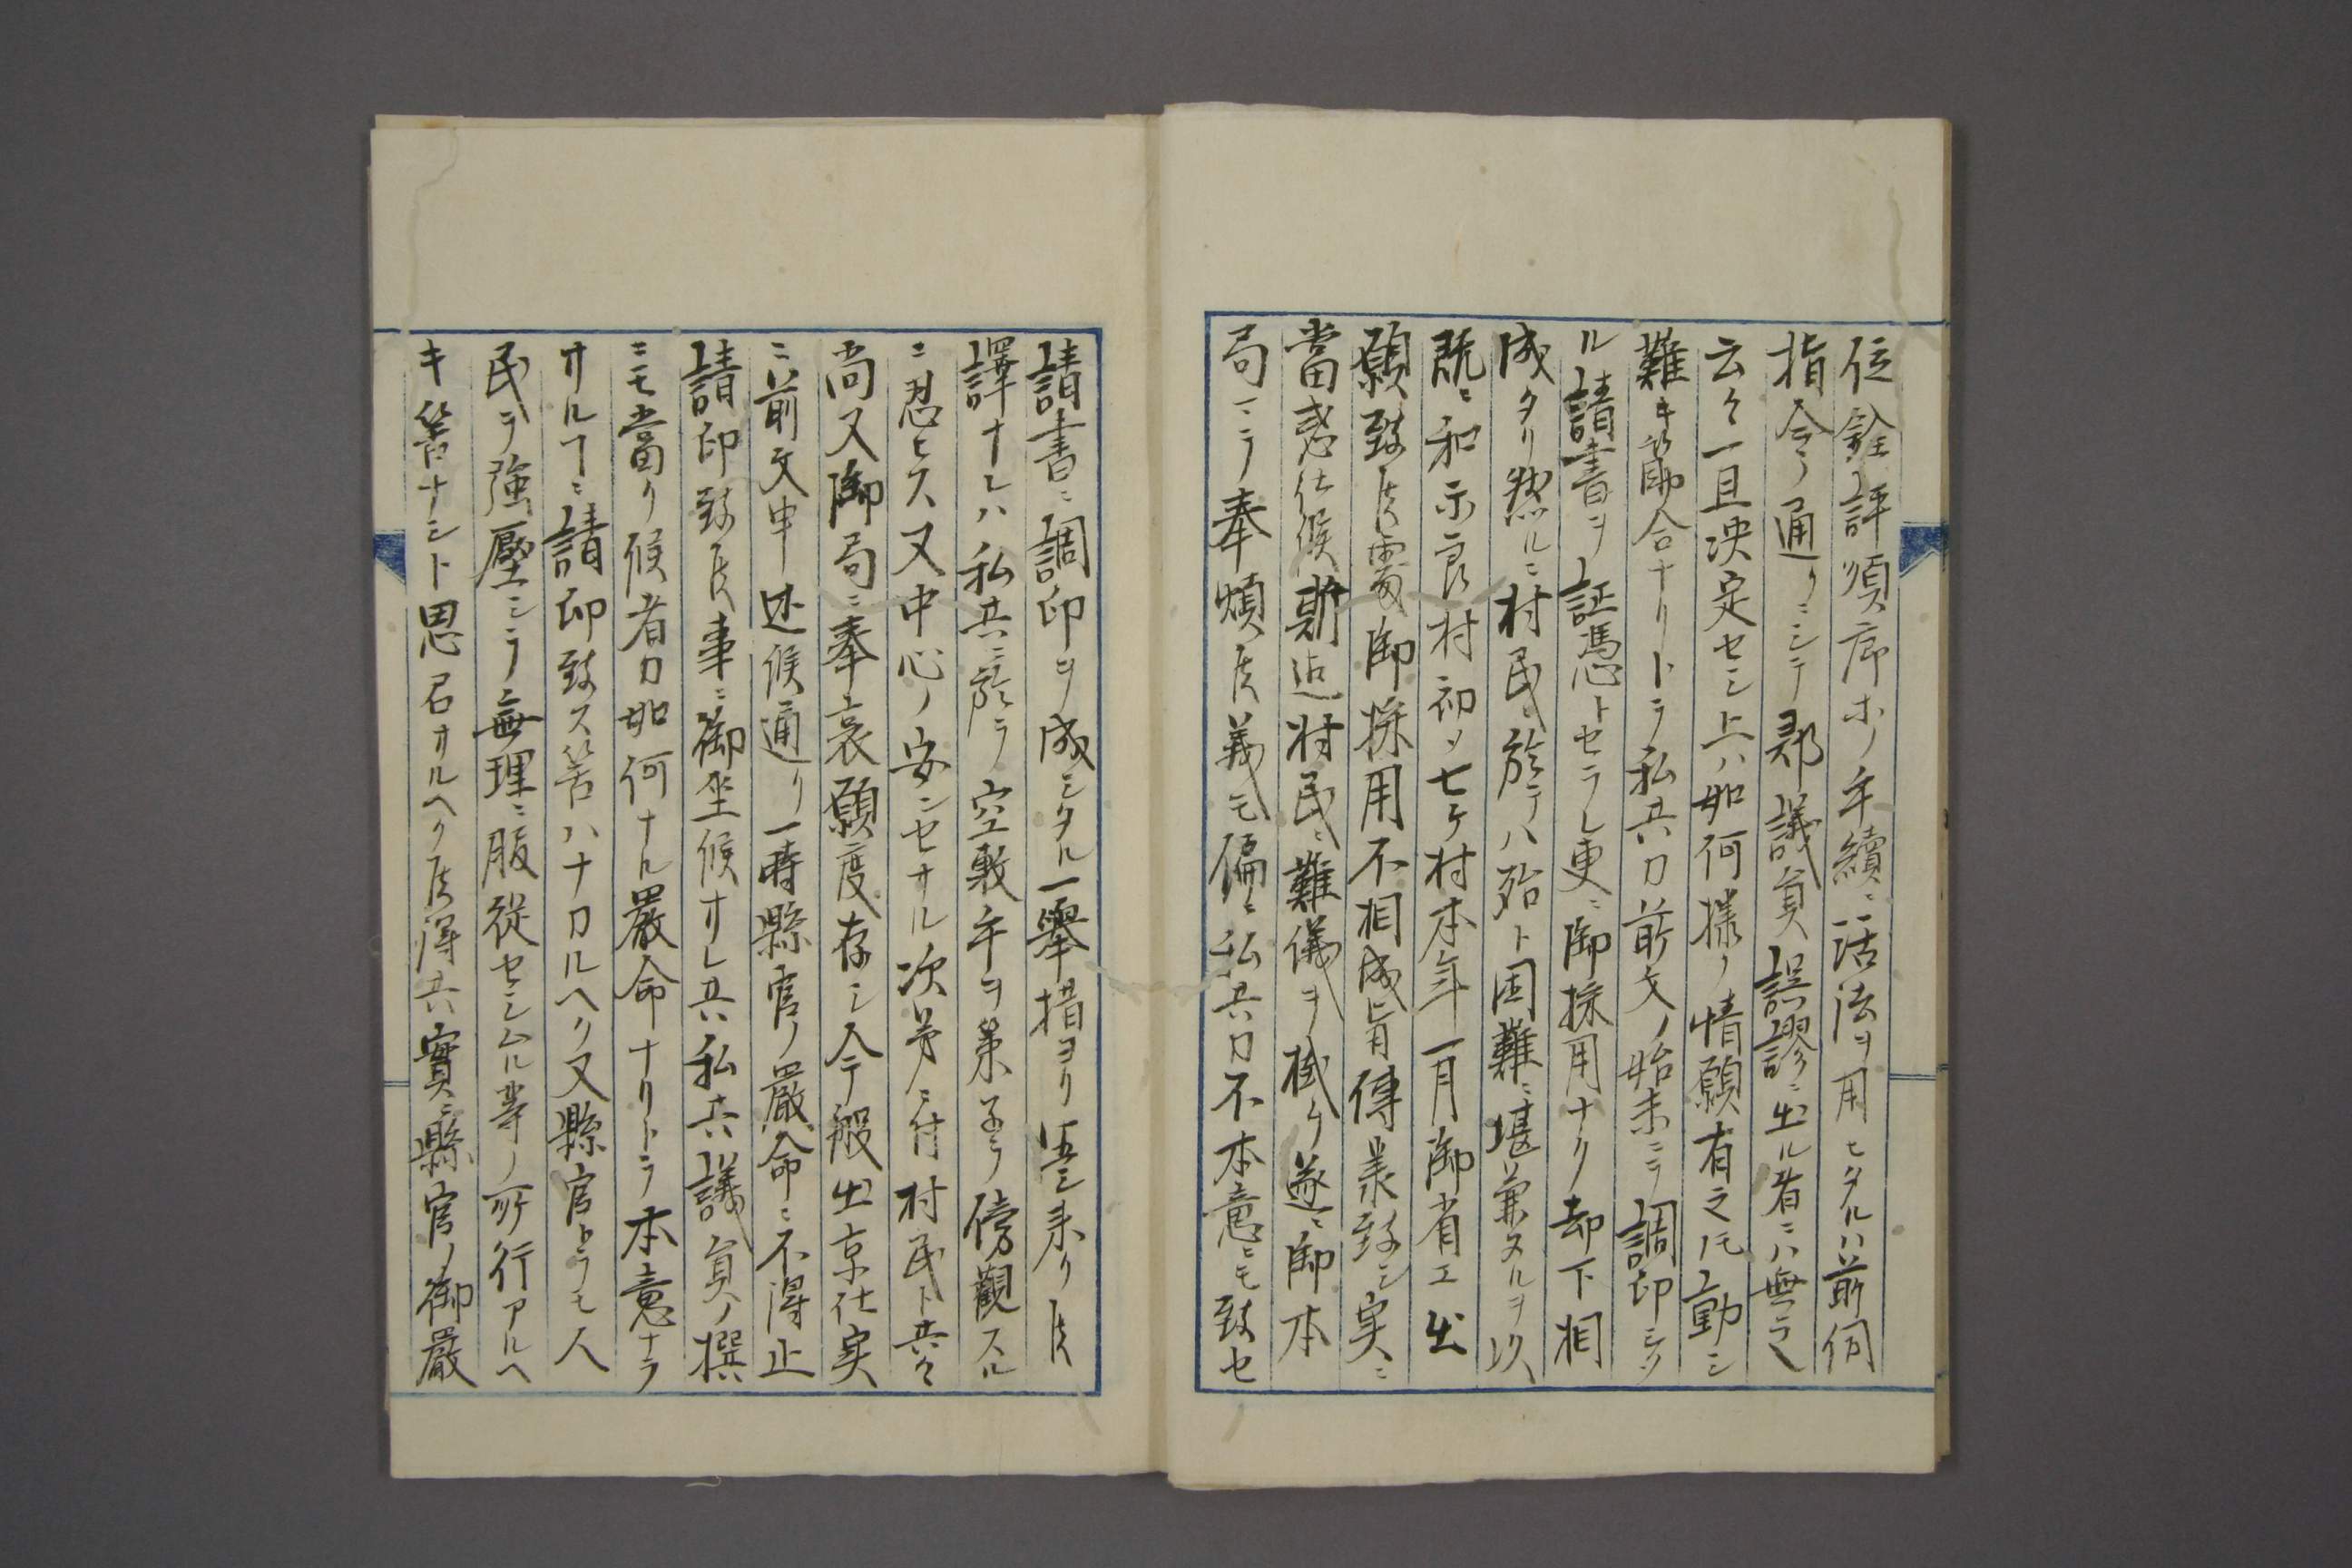 位銓評順序ホノ手續ニ活法ヲ用ヒタルハ前伺
指令ノ通リニシテ郡議員誤謬ニ出ル者ニハ無之
云々一旦决定セシ上ハ如何樣ノ情願有之ﾄﾓ動シ
難キ筋合ナリトテ私共カ前文ノ始末ニテ調印シタ
ル請書ヲ証憑トセラレ更ニ御採用ナク却下相
成タリ然ルニ村民於テハ殆ト困難ニ堪兼タルヲ以
既ニ和示良村初メ七ケ村本年一月御省エ出
願致候處御採用不相成旨傳義致シ実ニ
當惑仕候斯迠村民ニ難儀ヲ掛ケ遂ニ御本
局ニテ奉煩候義モ偏ニ私共カ不本意ニモ致セ
請書ニ調印ヲ成シタル一擧措ヨリ生シ来リ候
譯ナレハ私共ニ於テ空敷手ヲ束子テ傍觀スル
ニ忍ヒス又中心ノ安ンセサル次第ニ付村民ト共々
尚又御局ニ奉哀願度存シ今般出京仕実
ニ前文申述候通リ一時縣官ノ嚴命ニ不得止
請印致候事ニ御坐候オレ共私共議員ノ撰
ニモ當リ候者カ如何ナル嚴命ナリトテ本意ナラ
サルヿニ請印致ス筈ハナカルヘク又縣官トテモ人
民ヲ強壓シテ無理ニ服從セシムル等ノ所行アルヘ
キ筈ナシト思召サルヘク候得共實ニ縣官ノ御嚴